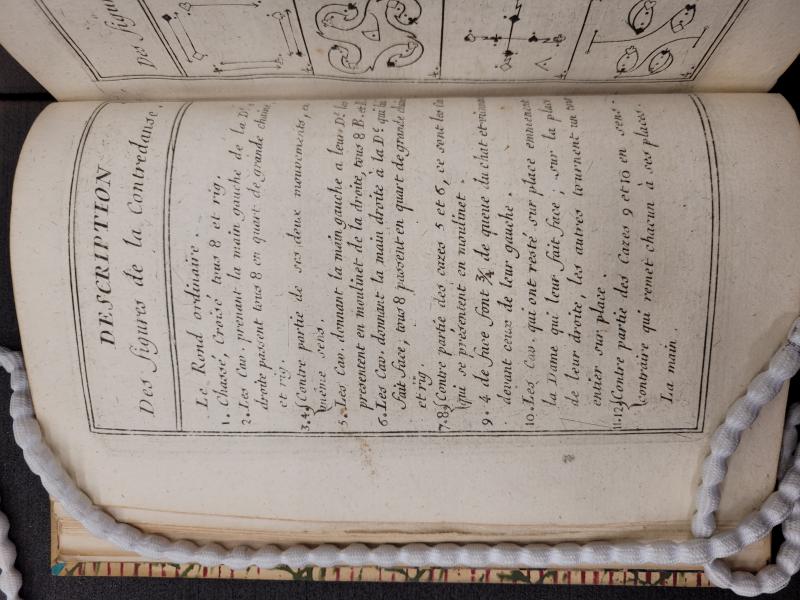 Des figu
DESCRIPTION
Des figures de la Contredanse.
Le Rond ordinaire.
1. Chassé, Croisé tous 8 et rig.
2. Les Cav. prenant la main gauche de la D.
droite passent tous 8 en quart de grande chaine
et rig.
3.4 Contre partie de ses deux mouvements, a
même sens.
5. Les Cav. donnant la main gauche a leur D.
presentent en moulinet de la droite, tous 8 B.
6. Les Cav. donnant la main droite à la D.e qui
fait face, tous 8 passent en quart de grande
et rig.
7.8 Contre partie des cazes 5 et 6, ce sont les
qui se présentent en moulinet.
9. 4 de face font ¾ de queue du chat et
devant ceux de leur gauche.
10. Les Cav. qui ont resté sur place
la Dame qui leur fait face; sur la place
de leur droite, les autres tournent un
entier sur place.
11.12 Contre partie des Cazes 9 et 10 en sens
contraire qui remet chacun à ses places.
La main.
A